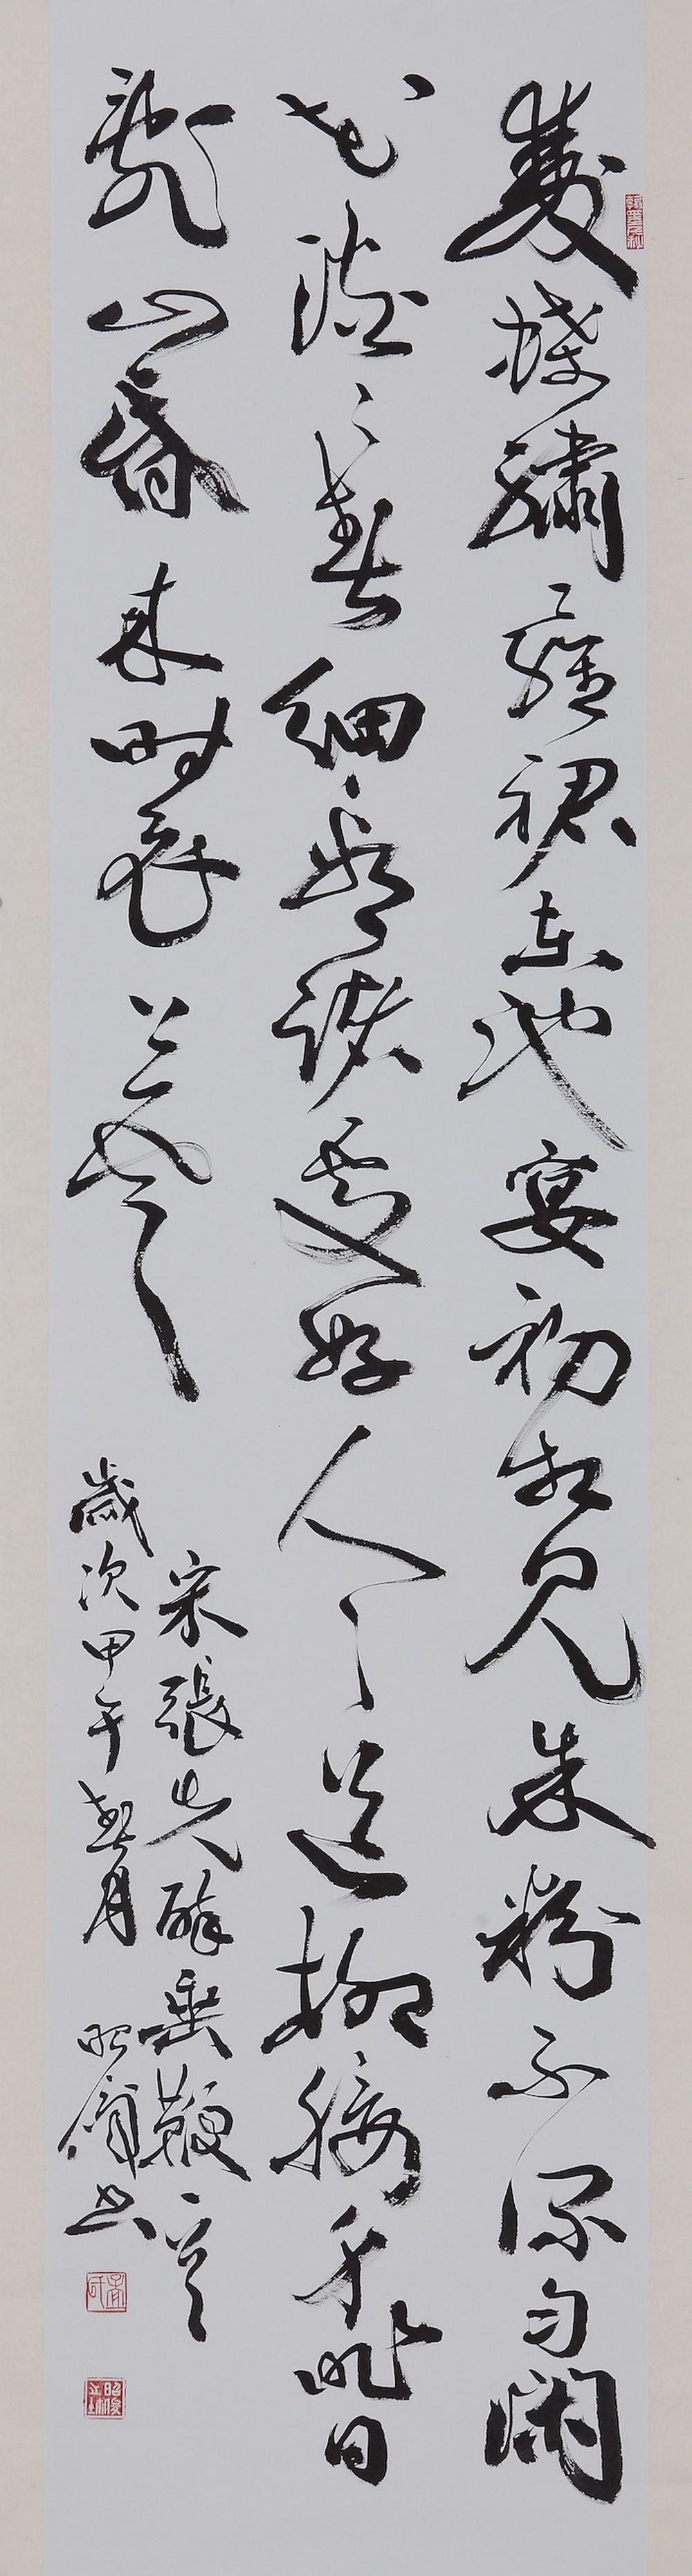 雙蝶繡羅裙東池宴初相見朱粉不深勻閑
花澹々春細看諸處好人々道柳腰身昨日
亂山昏來時衣上雲
宋張先醉垂鞭一首
歲次甲午春月 昭書